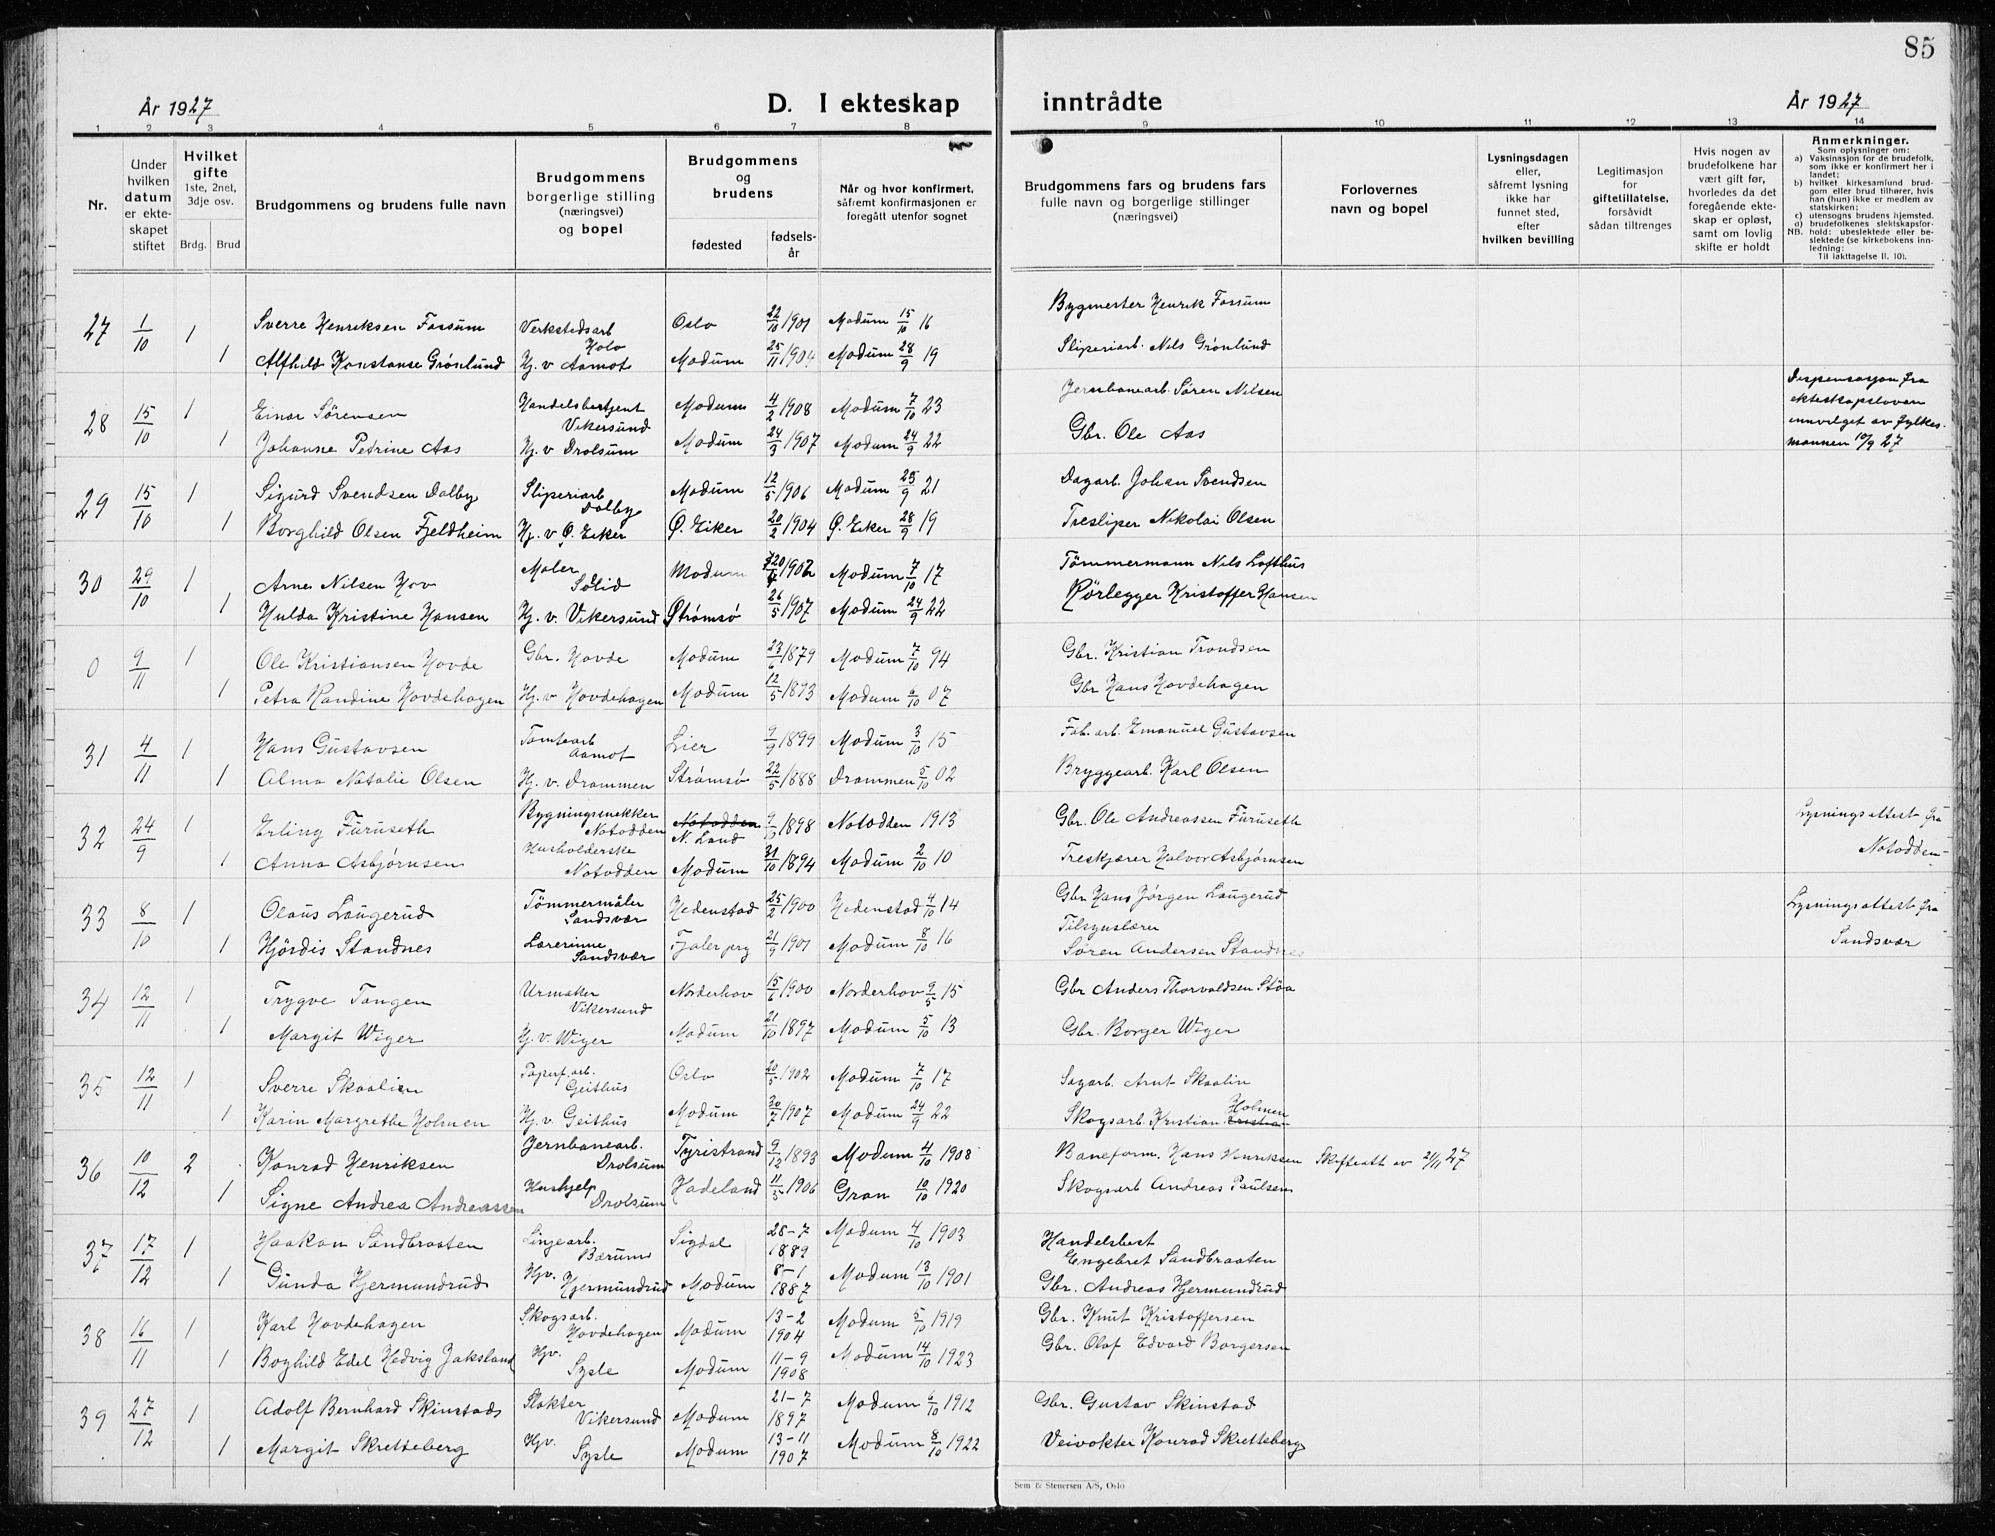 85
År 1927
D. I ekteskap inntrådte
År 1927
1 2 3 4 5 6 7 8 9 10 11 12 13 14
Nr.
Under hvilken datum er ekteskapet stiftet
Hvilket gifte 1ste, 2net, 3dje osv.
Brdg. Brud
Brudgommens og brudens fulle navn
Brudgommens borgerlige stilling (næringsvei) og bopel
Brudgommens og brudens
fødested
fødselsår
Når og hvor konfirmert, såfremt konfirmasjonen er foregått utenfor sognet
Brudgommens fars og brudens fars fulle navn og borgerlige stillinger (næringsvei)
Forlovernes navn og bopel
Lysningsdagen eller, såfremt lysning ikke har funnet sted, efter hvilken bevilling
Legitimasjon for giftetillatelse, forsåvidt sådan tiltrenges
Hvis nogen av brudefolkene har vært gift før, hvorledes da det foregående ekteskap er opløst, samt om lovlig skifte er holdt
Anmerkninger.
Som oplysninger om:
a) Vaksinasjon for de brudefolk, som ikke er konfirmert her i landet;
b) hvilket kirkesamlund brudgom eller brud tilhører, hvis han (hun) ikke er medlem av statskirken;
c) utensogns brudens hjemsted.
d) brudefolkenes slektskapsforhold: ubeslektede eller beslektede (se kirkebokens innledning:
NB.
Til iakttagelse II. 10).
27 1/10 1 Sverre Henriksen Fossum Verkstedsarb Holo Oslo 22/10 1901 Modum 15/10 16 Bygmester Henrik Fossum
1 Alfhild Konstanse Grønlund Hj. v Aamot Modum 25/11 1904 Modum 28/9 19 Sliperiarb. Nils Grønlund
28 15/10 1 Einar Sørensen Handelsbetjent Vikersund Modum 4/2 1908 Modum 7/10 23 Jernbanearb. Søren Nilsen Dispensasjon fra ekteskapsloven innvilget av fylkesmannen 10/9 27
1 Johanne Petrine Aas Hj. v Drolsum Modum 24/3 1907 Modum 24/9 22 Gbr. Ole Aas
29 15/10 1 Sigurd Svendsen Dalby Sliperiarb Dalby Modum 12/5 1906 Modum 25/9 21 Dagarb. Johan Svendsen
1 Borghild Olsen Fjeldheim Hj. v Ø. Eiker Ø. Eiker 20/2 1904 Ø. Eiker 28/9 19 Tresliper Nikolai Olsen
30 29/10 1 Arne Nilsen Hov Maler Solid Modum 1902 Modum 7/10 17 Tømmermann Nils Lofthus
1 Hulda Kristine Hansen Hj. v. Vikersund Strømsø 26/5 1907 Modum 24/9 22 Rørlegger Kristoffer Hansen
0 9/11 1 Ole Kristiansen Hovde Gbr. Hovde Modum 23/6 1879 Modum 7/10 94 Gbr. Kristian Trondsen
1 Petra Randine Hovdehagen Hj. v Hovdehagen Modum 12/5 1893 Modum 6/10 07 Gbr Hans Hovdehagen
31 4/11 1 Hans Gustavsen Tomtearb Aamot Lier 9/9 1899 Modum 3/10 15 Fab. arb. Emanuel Gustavsen
1 Alma Natalie Olsen Hj. v. Drammen Strømsø 22/5 1888 Drammen 5/10 02 Bryggearb. Karl Olsen
32 24/9 1 Erling Furuseth Bygningssnekker Notodden Notodden N. Land 1898 Notodden 1913 Gbr. Ole Andreassen Furuseth Lysningsattest fra Notodden
1 Anna Asbjørnsen Husholderske Notodden Modum 31/10 1894 Modum 2/10 10 Treskjærer Halvor Asbjørnsen
33 8/10 1 Olaus Laugerud Tømmermåler Sandsvær Hedenstad 25/2 1900 Hedenstad 4/10 14 Gbr Hans Jørgen Laugerud Lysningsattest fra Sandsvær
1 Hjørdis Standnes Lærerinne Sandsvær Fjaler prg 21/9 1901 Modum 8/10 16 Tilsynslærer Søren Andersen Standnes
34 12/11 1 Trygve Tangen Urmaker Vikersund Norderhov 15/6 1900 Norderhov 9/5 15 Gbr Anders Thorvaldsen Støa
1 Margit Wiger Hj. v. Wiger Modum 21/10 1897 Modum 5/10 13 Gbr. Borger Wiger
35 12/11 1 Sverre Skaalien Papirf. arb. Geithus Oslo 20/5 1902 Modum 7/10 17 Sagarb. Arnt Skaalin
1 Karin Margrethe Holmen Hj. v. Geithus Modum 30/7 1907 Modum 24/9 22 Skogsarb. Kristian Kristian Holmen
36 10/12 2 Konrad Henriksen Jernbanearb. Drolsum Tyristrand 9/12 1893 Modum 4/10 1908 Baneform. Hans Henriksen Skifteatt av 21/11 27
1 Signe Andrea Andreassen Hushjelp Drolsum Hadeland 11/5 1906 Gran 10/10 1920 Skogsarb Andreas Paulsen
37 17/12 1 Haakon Sandbraaten Linjearb. Bærum Sigdal 28-7 1889 Modum 4/10 1903 Handelsbest Engebret Sandbraaten
1 Gunda Hjermundrud Hjv. Hjermundrud Modum 8-1 1887 Modum 13/10 1901 Gbr. Andreas Hjermundrud
38 16/11 1 Karl Hovdehagen Skogsarb. Hovdehagen Modum 13-2 1904 Modum 5/10 1919 Gbr. Knut Kristoffersen
1 Boghild Edel Hedvig Jaksland Hjv. Sysle Modum 11-9 1908 Modum 14/10 1923 Gbr. Olaf Edvard Borgersen
39 27/12 1 Adolf Bernhard Skinstad Slakter Vikersund Modum 21-7 1897 Modum 6/10 1912 Gbr. Gustav Skinstad
1 Margit Skretteberg Hjv. Sysle Modum 13-11 1907 Modum 8/10 1922 Veivokter Konrad Skretteberg
Sem & Stenersen A/S, Oslo